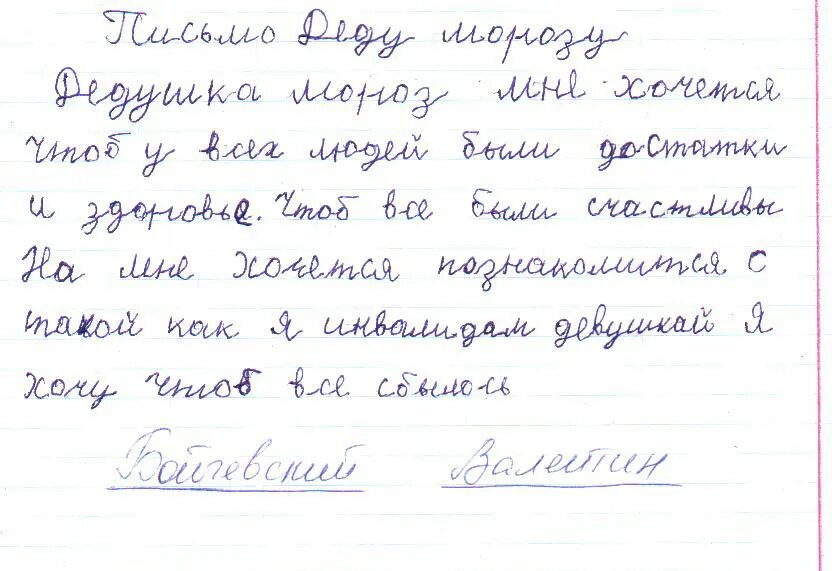 Письмо Деду морозу
Дедушка мороз мне хочется
чтоб у всех людей были достатки
и здоровье. Чтоб все были счастливы
На мне хочется познакомится с
такой как я инвалидам девушкай Я
хочу чтоб все сбылось
Бойчевский Валентин